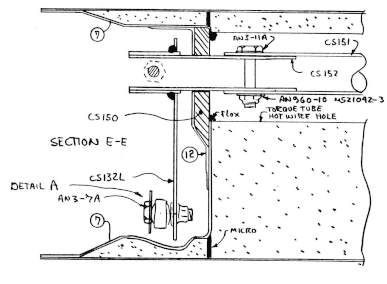 7
AN3-11A
CS151
CS152
AN960-10 MS21042-3
TORQUE TUBE
HOT WIRE HOLE
CS150
FLOX
SECTION E-E
12
CS132L
DETAIL A
AN3-7A
7
MICRO